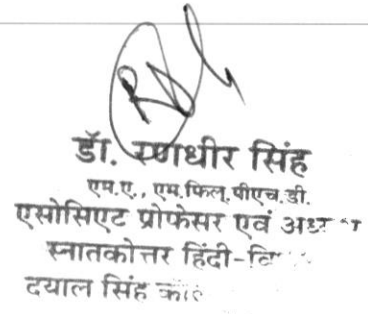 डॉ. रणधीर सिंह
एम.ए., एम.फिल्. पीएच.डी.
एसोसिएट प्रोफेसर एवं
स्नातकोत्तर हिंदी-
दयाल सिंह